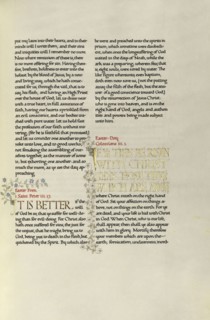 put my laws into their hearts, and in their
minds will I write them; and their sins
and iniquities will I remember no more.
Now where remission of these is, there
is no more offering for sin. Having there-
fore, brethren, boldness to enter into the
holiest by the blood of Jesus, by a new
and living way, which he hath conse-
crated for us, through the veil, that is to
say, his flesh; and having an High Priest
over the house of God; let us draw near
with a true heart, in full assurance of
faith, having our hearts sprinkled from
an evil conscience, and our bodies wa-
shed with pure water. Let us hold fast
the profession of our faith without wa-
vering; (for he is faithful that promised;)
and let us consider one another to pro-
voke unto love, and to good works;
not forsaking the assembling of our-
selves together, as the manner of some
is; but exhorting one another: and so
much the more, as ye see the day ap-
proaching.
Easter Even.
1 Saint Peter iii. 17
IT IS BETTER, if the
will of God be so, that ye suffer for well-do-
ing than for evil-doing. For Christ also
hath once suffered for sins, the just for
the unjust, that he might bring us to
God, being put to death in the flesh, but
quickened by the Spirit. By which also
he went and preached unto the spirits in
prison; which sometime were disobedi-
ent, when once the longsuffering of God
waited in the days of Noah, while the
ark was a preparing, wherein few, that
is, eight souls, were saved by water. The
like figure whereunto, even baptism,
doth also now save us, (not the putting
away the filth of the flesh, but the ans-
wer of a good conscience toward God,)
by the resurrection of Jesus Christ:
who is gone into heaven, and is on the
right hand of God, angels and author-
ities and powers being made subject
unto him.
Easter-Day.
Colossians iii. 1
IF YE THEN BE RISEN
WITH CHRIST,
SEEK THOSE THINGS
WHICH ARE ABOVE,
where Christ sitteth on the right hand
of God. Set your affection on things a-
bove, not on things on the earth. For ye
are dead, and your life is hid with Christ
in God. When Christ, who is our life,
shall appear, then shall ye also appear
with him in glory. Mortify therefore
your members which are upon the
earth; fornication, uncleanness, inordi-